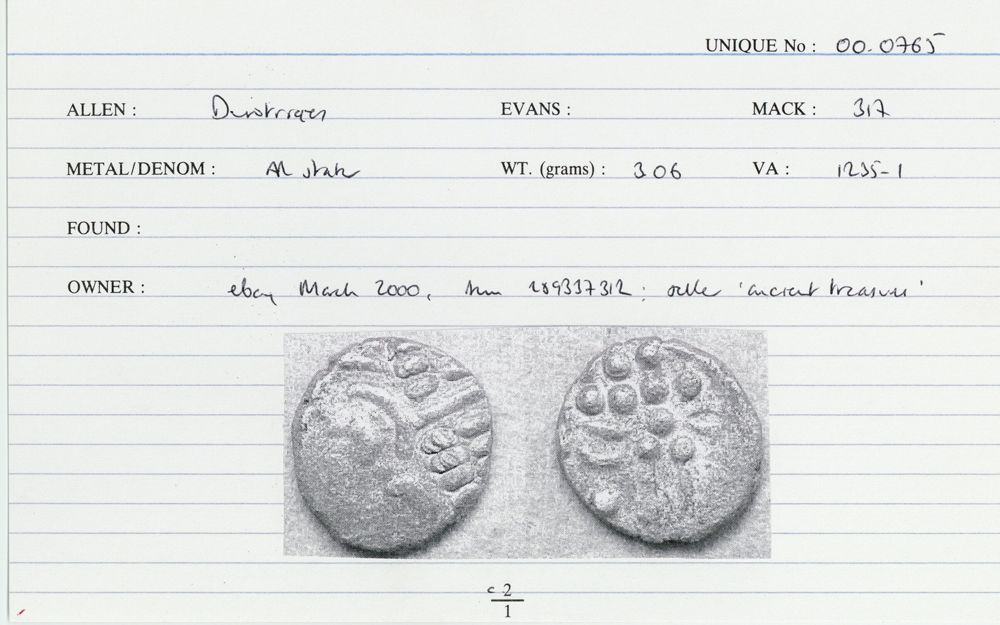 UNIQUE No : 00.0765
ALLEN : Durotrigan EVANS : MACK : 317
METAL/DENOM : AR stater WT. (grams) : 3.06 VA : 1235-1
FOUND :
OWNER : ebay March 2000, item 289337312 : seller 'ancient treasures'
c 2
1